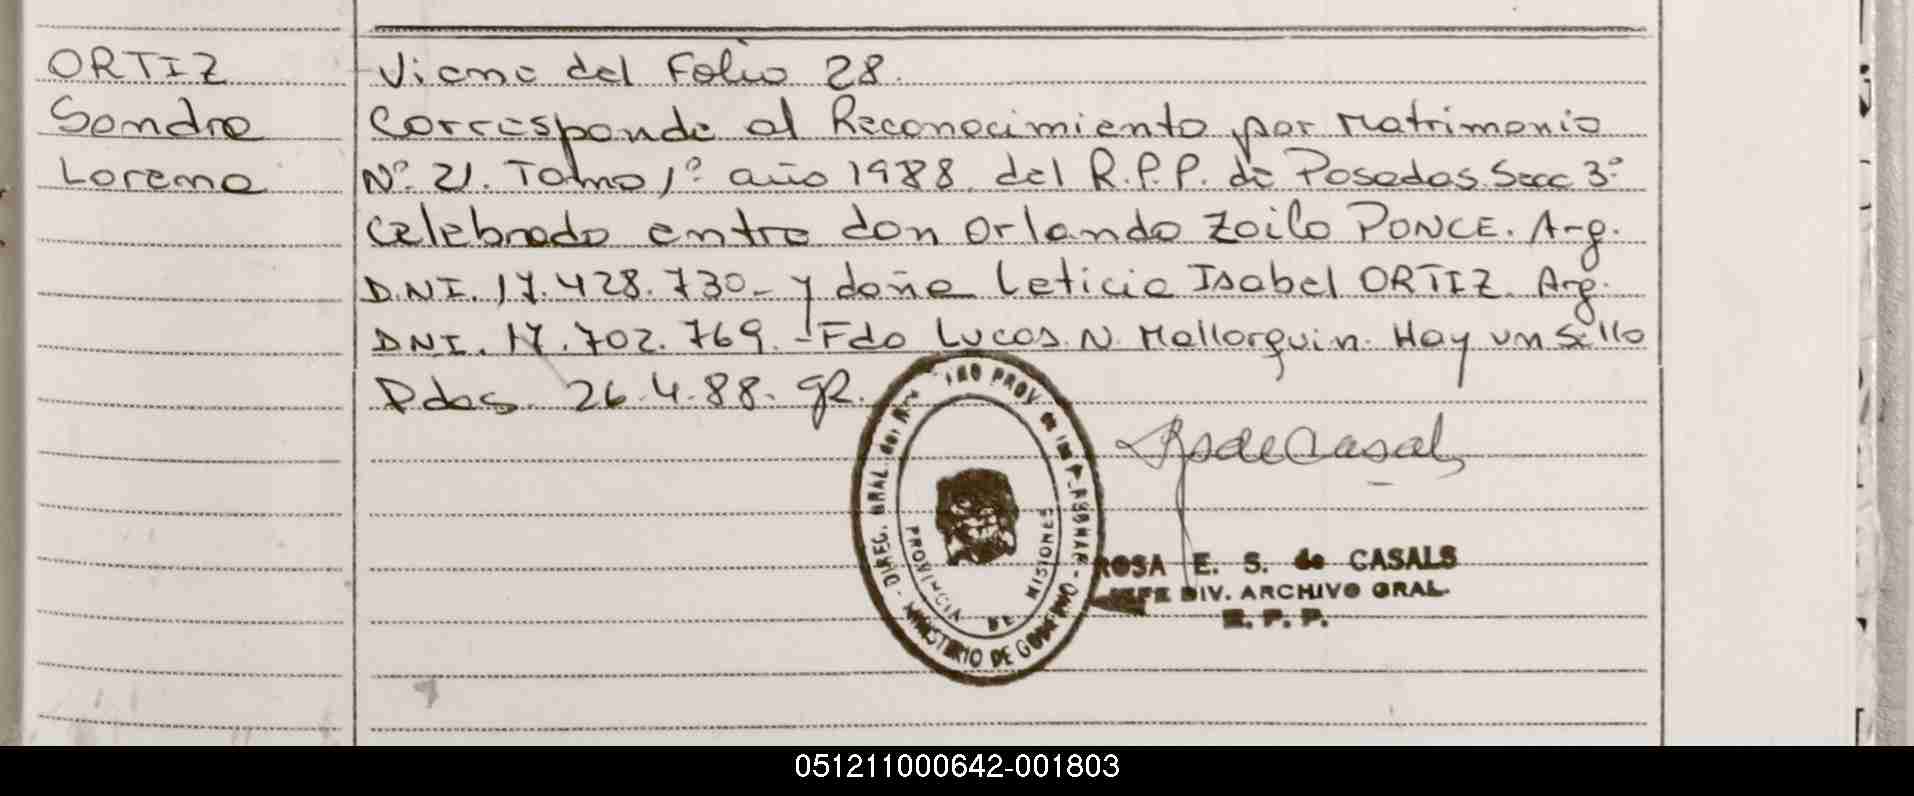 ORTIZ
Sandra
Lorena
Viene del Folio 28.
Corresponde al Reconocimiento por Matrimonio
Nº 21. Tomo 1º año 1988. del R.P.P. de Posadas. Secc 3º
celebrado entre don Orlando Zoilo PONCE. Arg.
D.NI. 17.428.730_ y doña Leticia Isabel ORTIZ. Arg.
DNI. 17.702.769.-Fdo Lucas. N. Mallorquin. Hay un Sello
Pdas. 26.4.88. gR.
DIREC. GRAL. del PROV. de las PERSONAS - MINISTERIO DE GOBIERNO -
PROVINCIA DE MISIONES
RsdeCasals
ROSA E. S. de CASALS
JEFE DIV. ARCHIVO GRAL.
R. P. P.
051211000642-001803